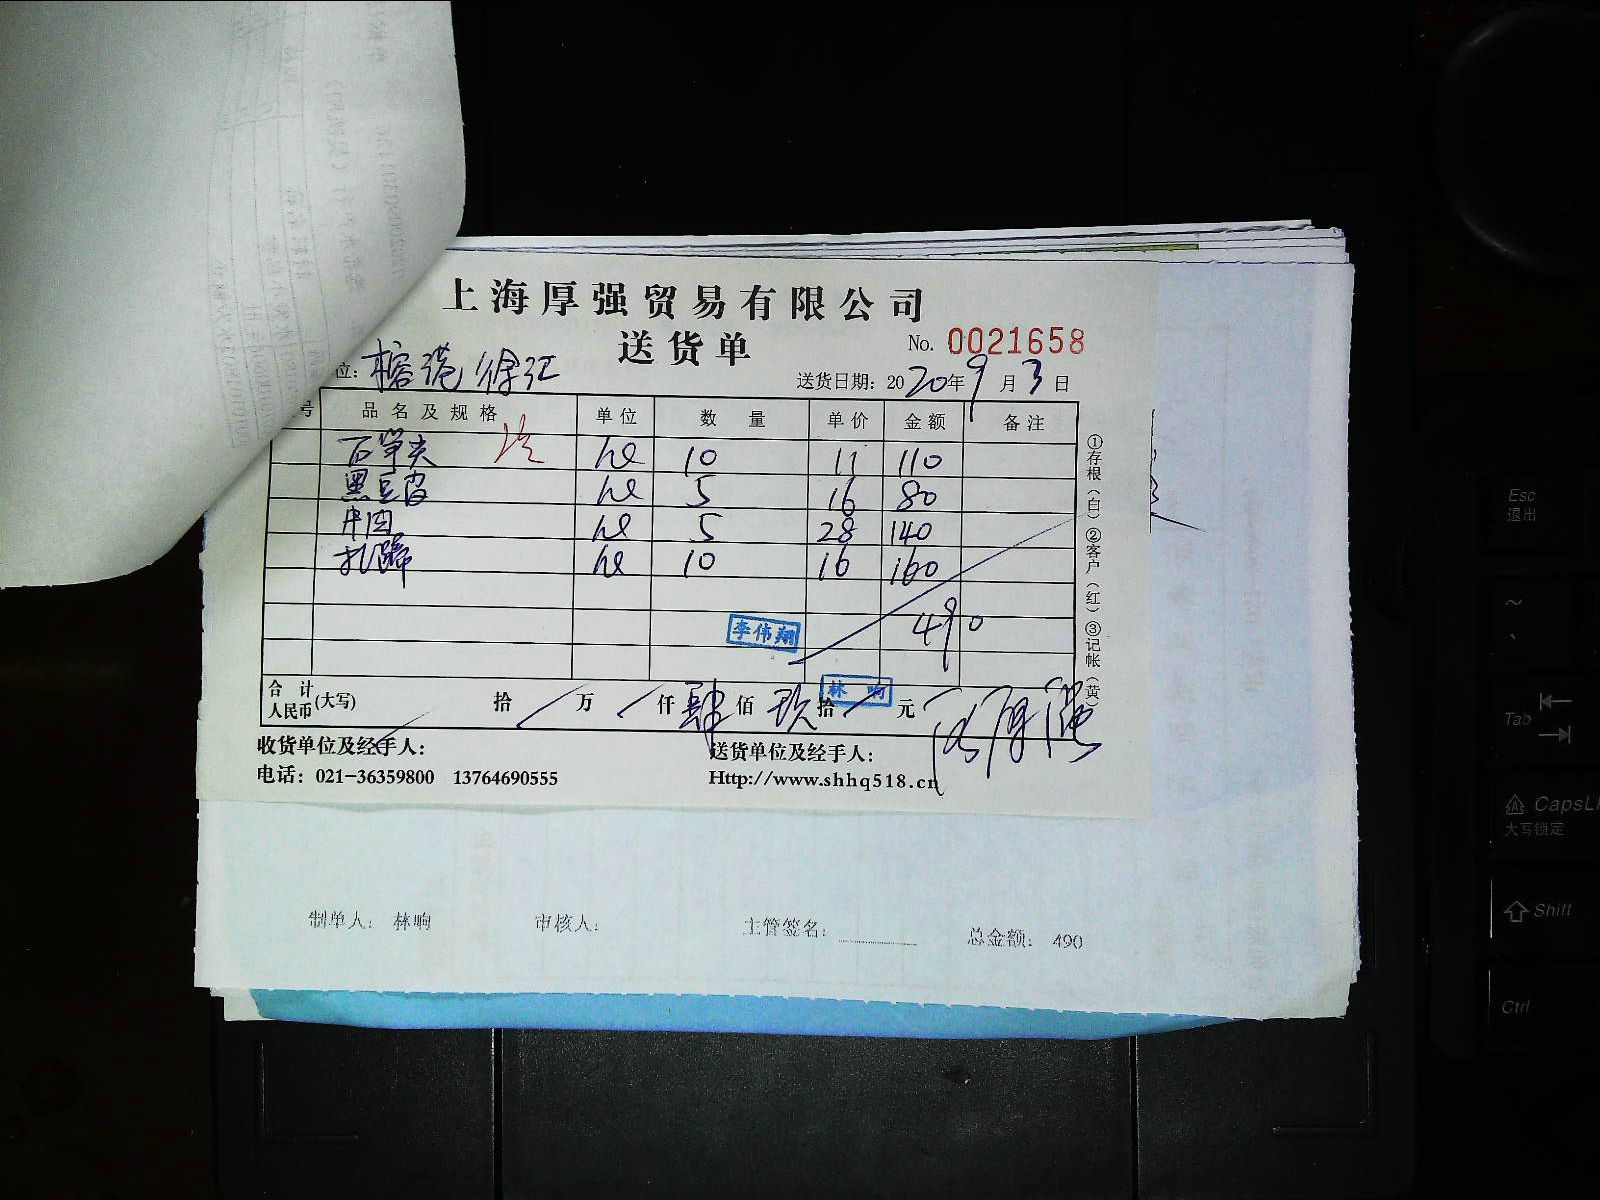 上海厚强贸易有限公司
送货单
No. 0021658
位：榕港徐汇
送货日期：2020年9月3日
号 品名及规格 单位 数量 单价 金额 备注
石笋尖 10 11 110
黑豆皮 5 16 80
牛肉 5 28 140
扎蹄 10 16 160
490
李伟翔
林响
合计人民币(大写) 拾 万 仟肆佰玖拾 元
①存根（白）②客户（红）③记帐（黄）
收货单位及经手人：
送货单位及经手人：
电话：021-36359800 13764690555
Http://www.shhq518.cn
制单人：林响 审核人： 主管签名： 总金额：490
Esc
退出
~
Tab
CapsL
大写锁定
Shift
Ctrl